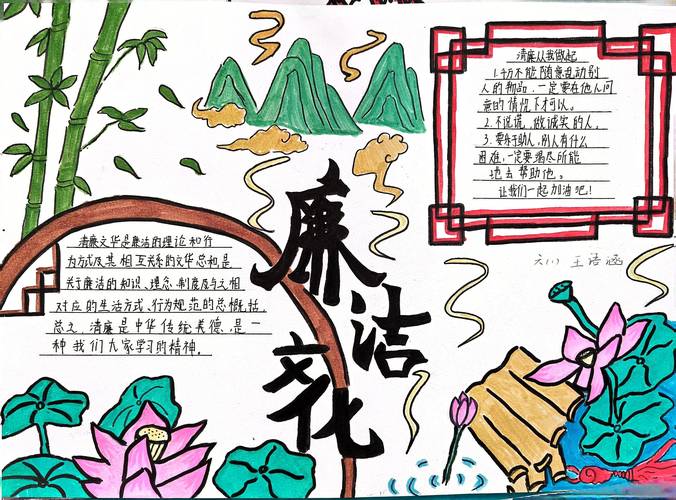 廉洁
文化
清廉文华是廉洁的理论和行
为方式及其相互关系的文华总和,是
关于廉洁的知识、理念、制度及与之相
对应的生活方式、行为规范的总概括。
总之,清廉是中华传统美德,是一
种我们大家学习的精神。
清廉从我做起
1.千万不能随意乱动别
人的物品,一定要在他人同
意的情况下才可以。
2.不说谎,做诚实的人。
3.要乐于助人,别人有什么
困难,一定要竭尽所能
地去帮助他。
让我们一起加油吧!
六(1) 王语涵